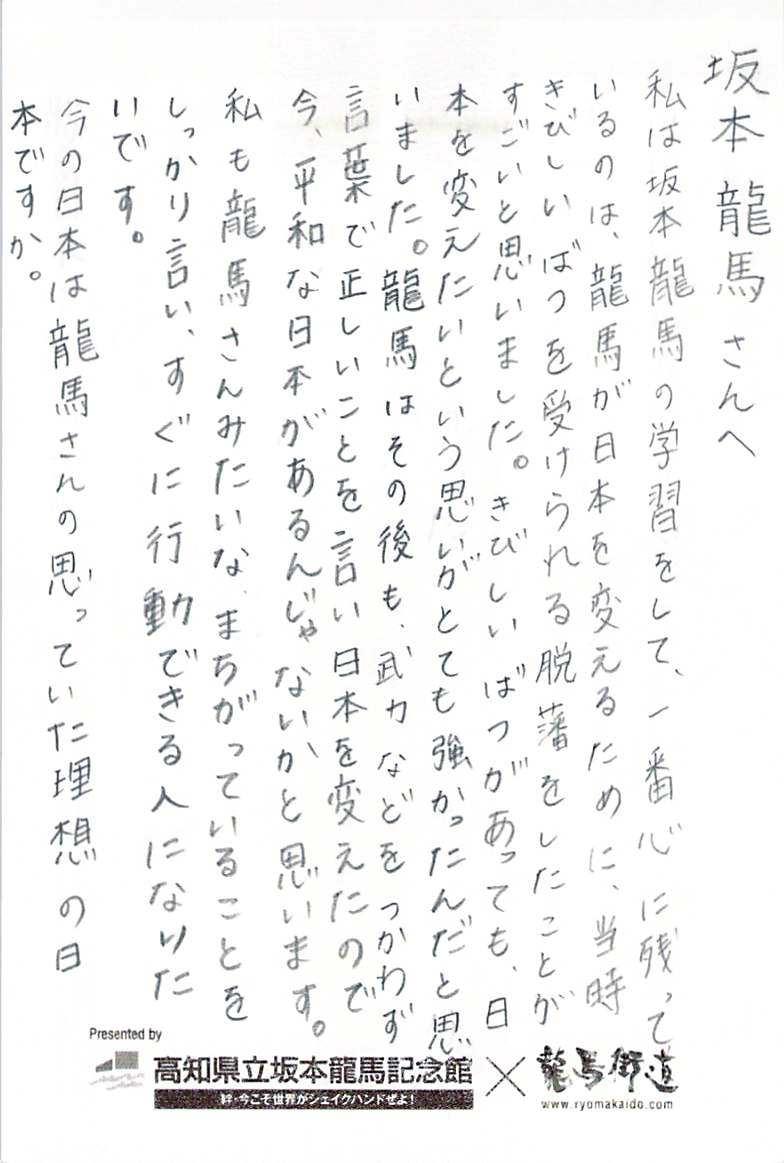 坂本龍馬さんへ
私は坂本龍馬の学習をして、一番心に残って
いるのは、龍馬が日本を変えるために、当時
きびしいばつを受けられる脱藩をしたことが
すごいと思いました。きびしいばつがあっても、日
本を変えたいという思いがとても強かったんだと思
いました。龍馬はその後も、武力などをつかわず
言葉で正しいことを言い日本を変えたので
今、平和な日本があるんじゃないかと思います。
私も龍馬さんみたいな、まちがっていることを
しっかり言い、すぐに行動できる人になりた
いです。
今の日本は龍馬さんの思っていた理想の日
本ですか。
Presented by
高知県立坂本龍馬記念館
絆・今こそ世界がシェイクハンドぜよ!
×
龍馬街道
www.ryomakaido.com